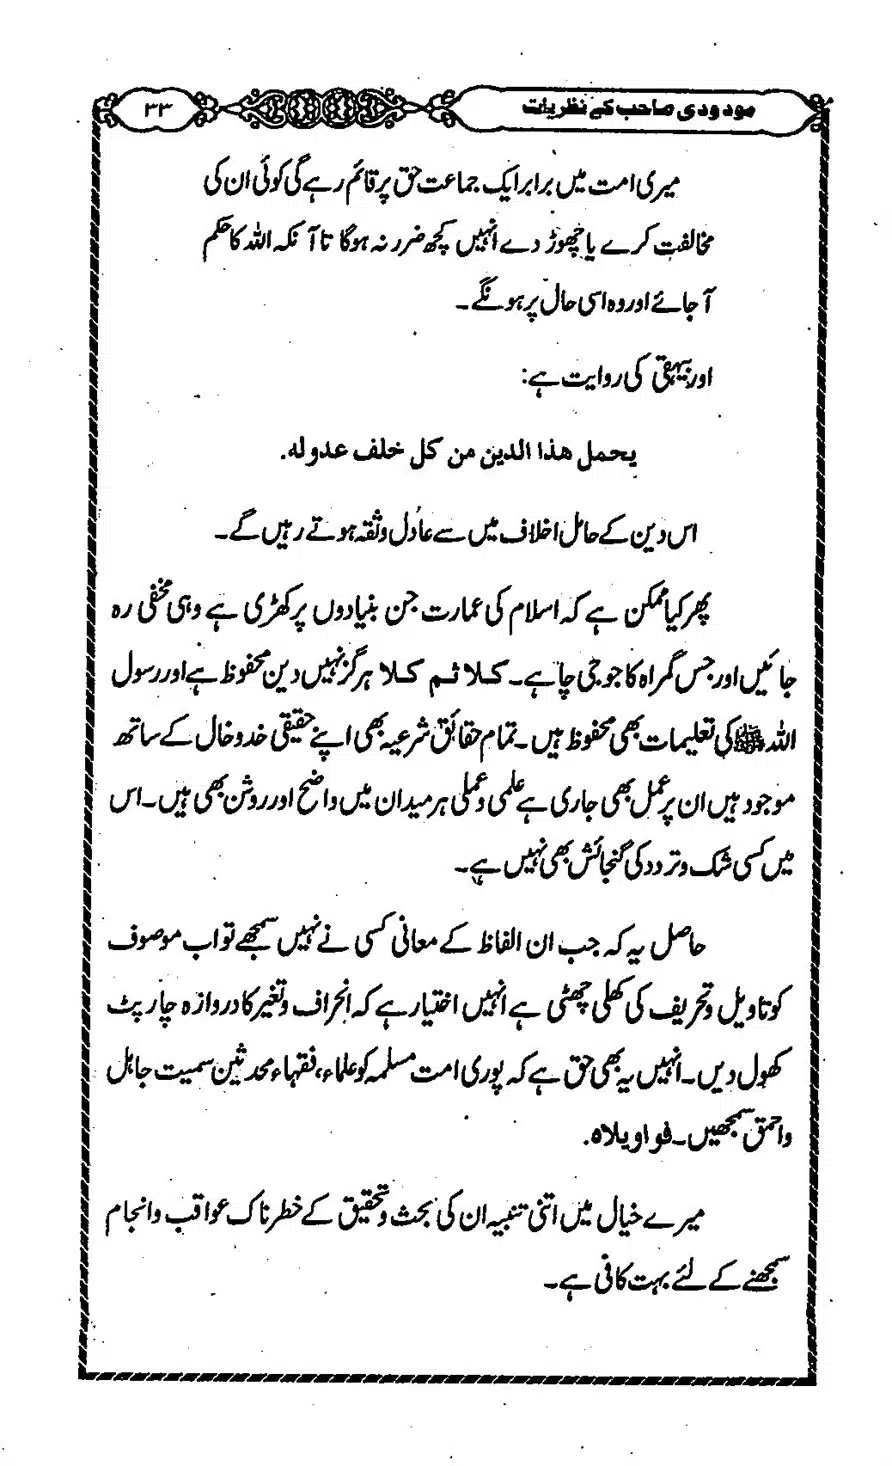 مودودی صاحب کے نظریات
۳۳
میری امت میں برابر ایک جماعت حق پر قائم رہے گی کوئی ان کی
مخالفت کرے یا چھوڑ دے انہیں کچھ ضرر نہ ہوگا تا آنکہ اللہ کا حکم
آجائے اور وہ اسی حال پر ہونگے۔
اور بیہقی کی روایت ہے:
يحمل هذا الدين من كل خلف عدوله.
اس دین کے حامل اخلاف میں سے عادل وثقہ ہوتے رہیں گے۔
پھر کیا ممکن ہے کہ اسلام کی عمارت جن بنیادوں پر کھڑی ہے وہی مخفی رہ
جائیں اور جس گمراہ کا جو جی چاہے۔ کلا ثم کلا ہرگز نہیں دین محفوظ ہے اور رسول
اللہ ﷺ کی تعلیمات بھی محفوظ ہیں۔ تمام حقائق شرعیہ بھی اپنے حقیقی خدوخال کے ساتھ
موجود ہیں ان پر عمل بھی جاری ہے علمی وعملی ہر میدان میں واضح اور روشن بھی ہیں۔ اس
میں کسی شک وتردد کی گنجائش بھی نہیں ہے۔
حاصل یہ کہ جب ان الفاظ کے معانی کسی نے نہیں سمجھے تو اب موصوف
کو تاویل وتحریف کی کھلی چھٹی ہے انہیں اختیار ہے کہ انحراف وتغیر کا دروازہ چارپٹ
کھول دیں۔ انہیں یہ بھی حق ہے کہ پوری امت مسلمہ کو علماء، فقہاء محدثین سمیت جاہل
واحمق سمجھیں۔ فواويلاه.
میرے خیال میں اتنی تنبیہ ان کی بحث وتحقیق کے خطرناک عواقب وانجام
سمجھنے کے لئے بہت کافی ہے۔